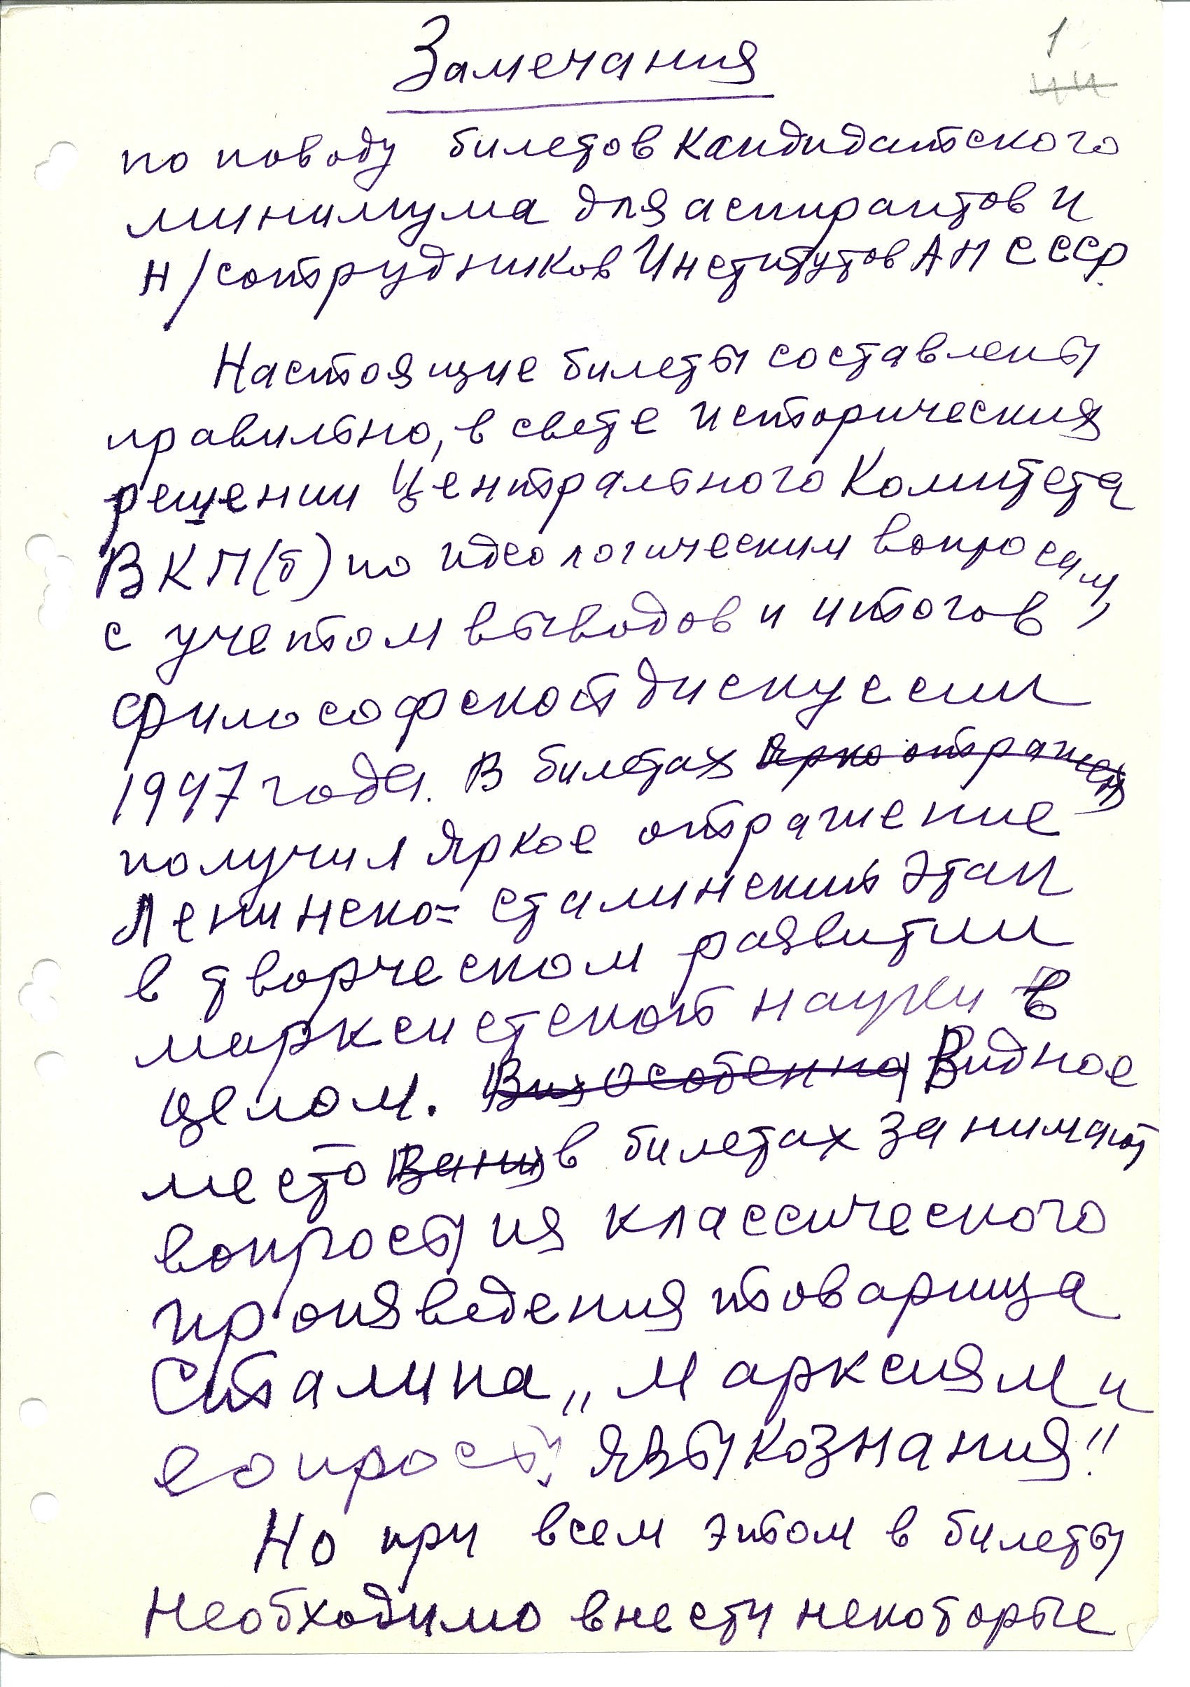 1
Замечания
по поводу билетов кандидатского
минимума для аспирантов и
н/сотрудников Институтов АН СССР.
Настоящие билеты составлены
правильно, в свете исторических
решении Центрального Комитета
ВКП(б) по идеологическим вопросам,
с учетом выводов и итогов
философской дискуссии
1947 года. В билетах ярко отражен
получил яркое отражение
Ленинско=сталинский этап
в творческом развитии
марксистской науки в
целом. Видное
место в билетах занимают
вопросы из классического
произведения товарища
Сталина „Марксизм и
вопросы языкознания"
Но при всем этом в билеты
необходимо внести некоторые